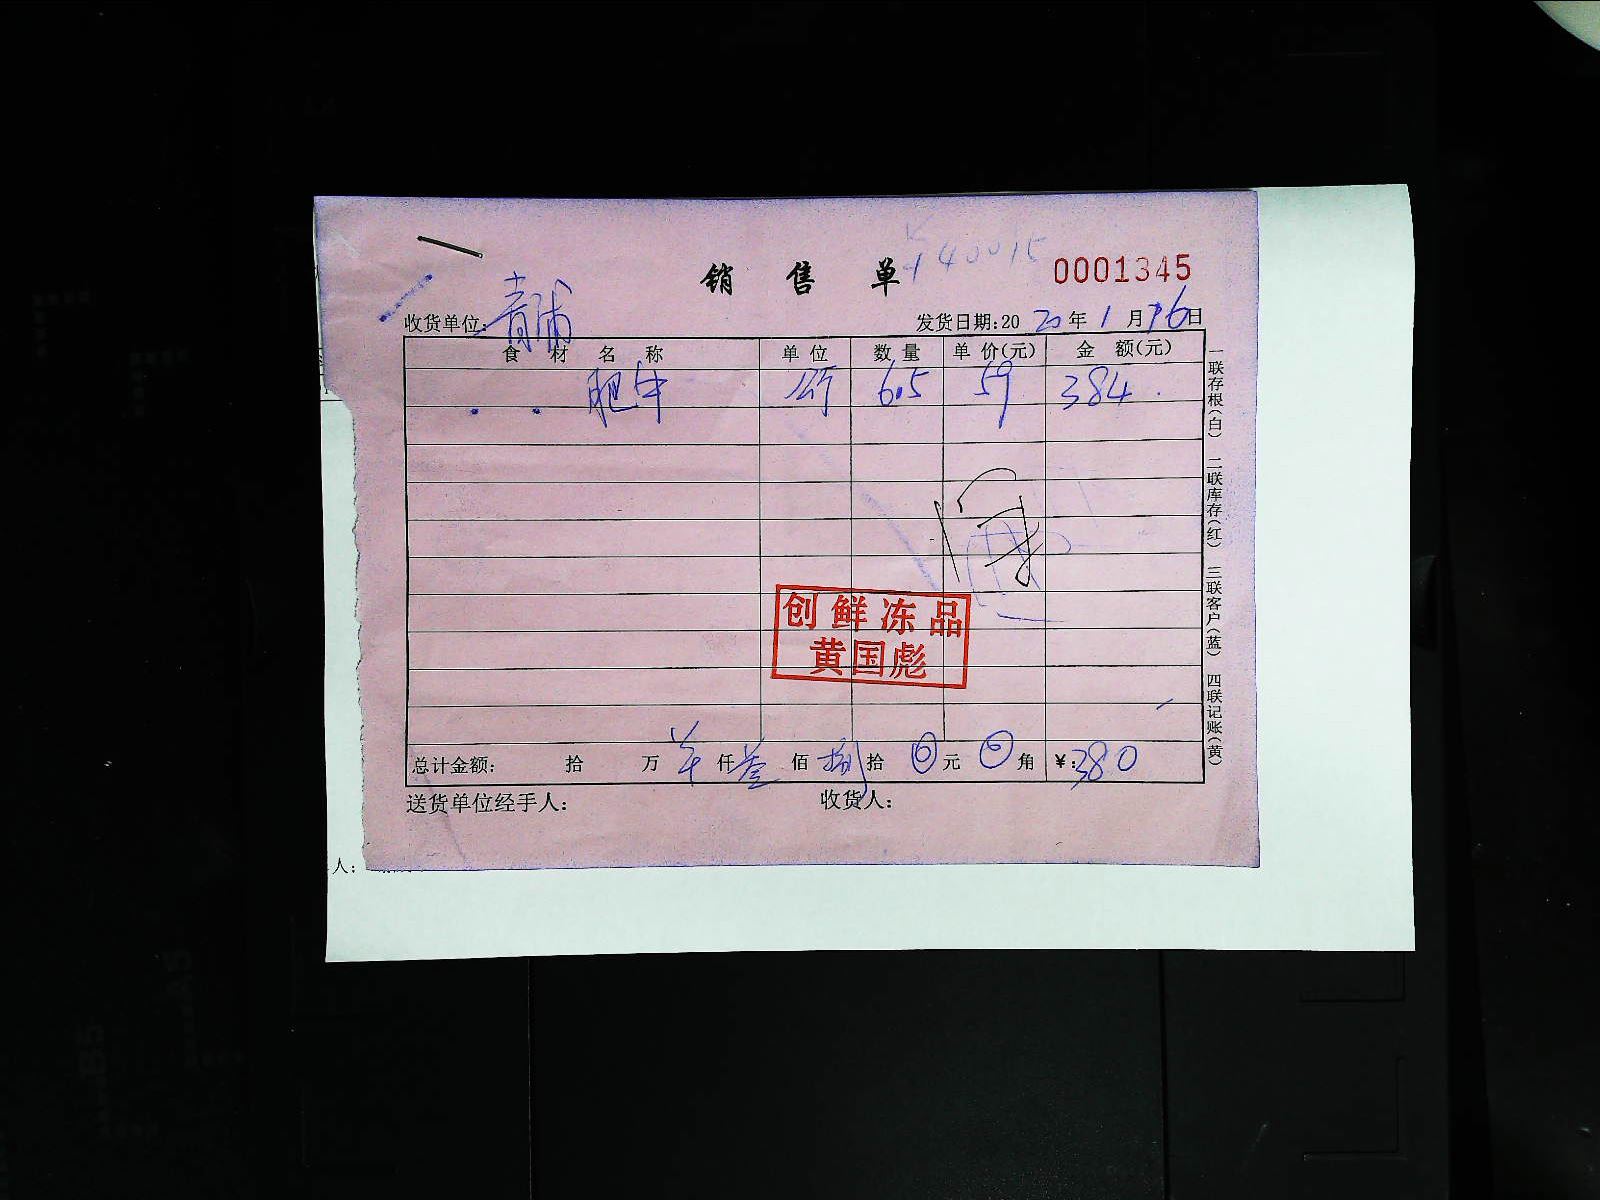 销售单 0001345
收货单位: 青浦 发货日期:2020年1月16日
食材名称 单位 数量 单价(元) 金额(元)
肥牛 公斤 6.5 59 384.
创鲜冻品
黄国彪
总计金额: 拾 万 仟叁佰捌拾0元0角 ¥:380
送货单位经手人: 收货人:
一联存根(白) 二联库存(红) 三联客户(蓝) 四联记账(黄)
人: